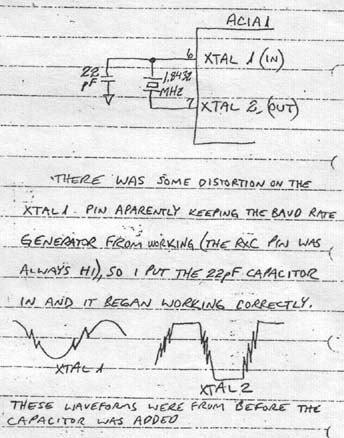 ACIA1
6 XTAL 1 (IN)
22 pF
1.8432 MHZ
7 XTAL 2 (OUT)
THERE WAS SOME DISTORTION ON THE
XTAL 1 PIN APARENTLY KEEPING THE BAUD RATE
GENERATOR FROM WORKING (THE RXC PIN WAS
ALWAYS HI), SO I PUT THE 22pF CAPACITOR
IN AND IT BEGAN WORKING CORRECTLY.
XTAL 1
XTAL 2
THESE WAVEFORMS WERE FROM BEFORE THE
CAPACITOR WAS ADDED